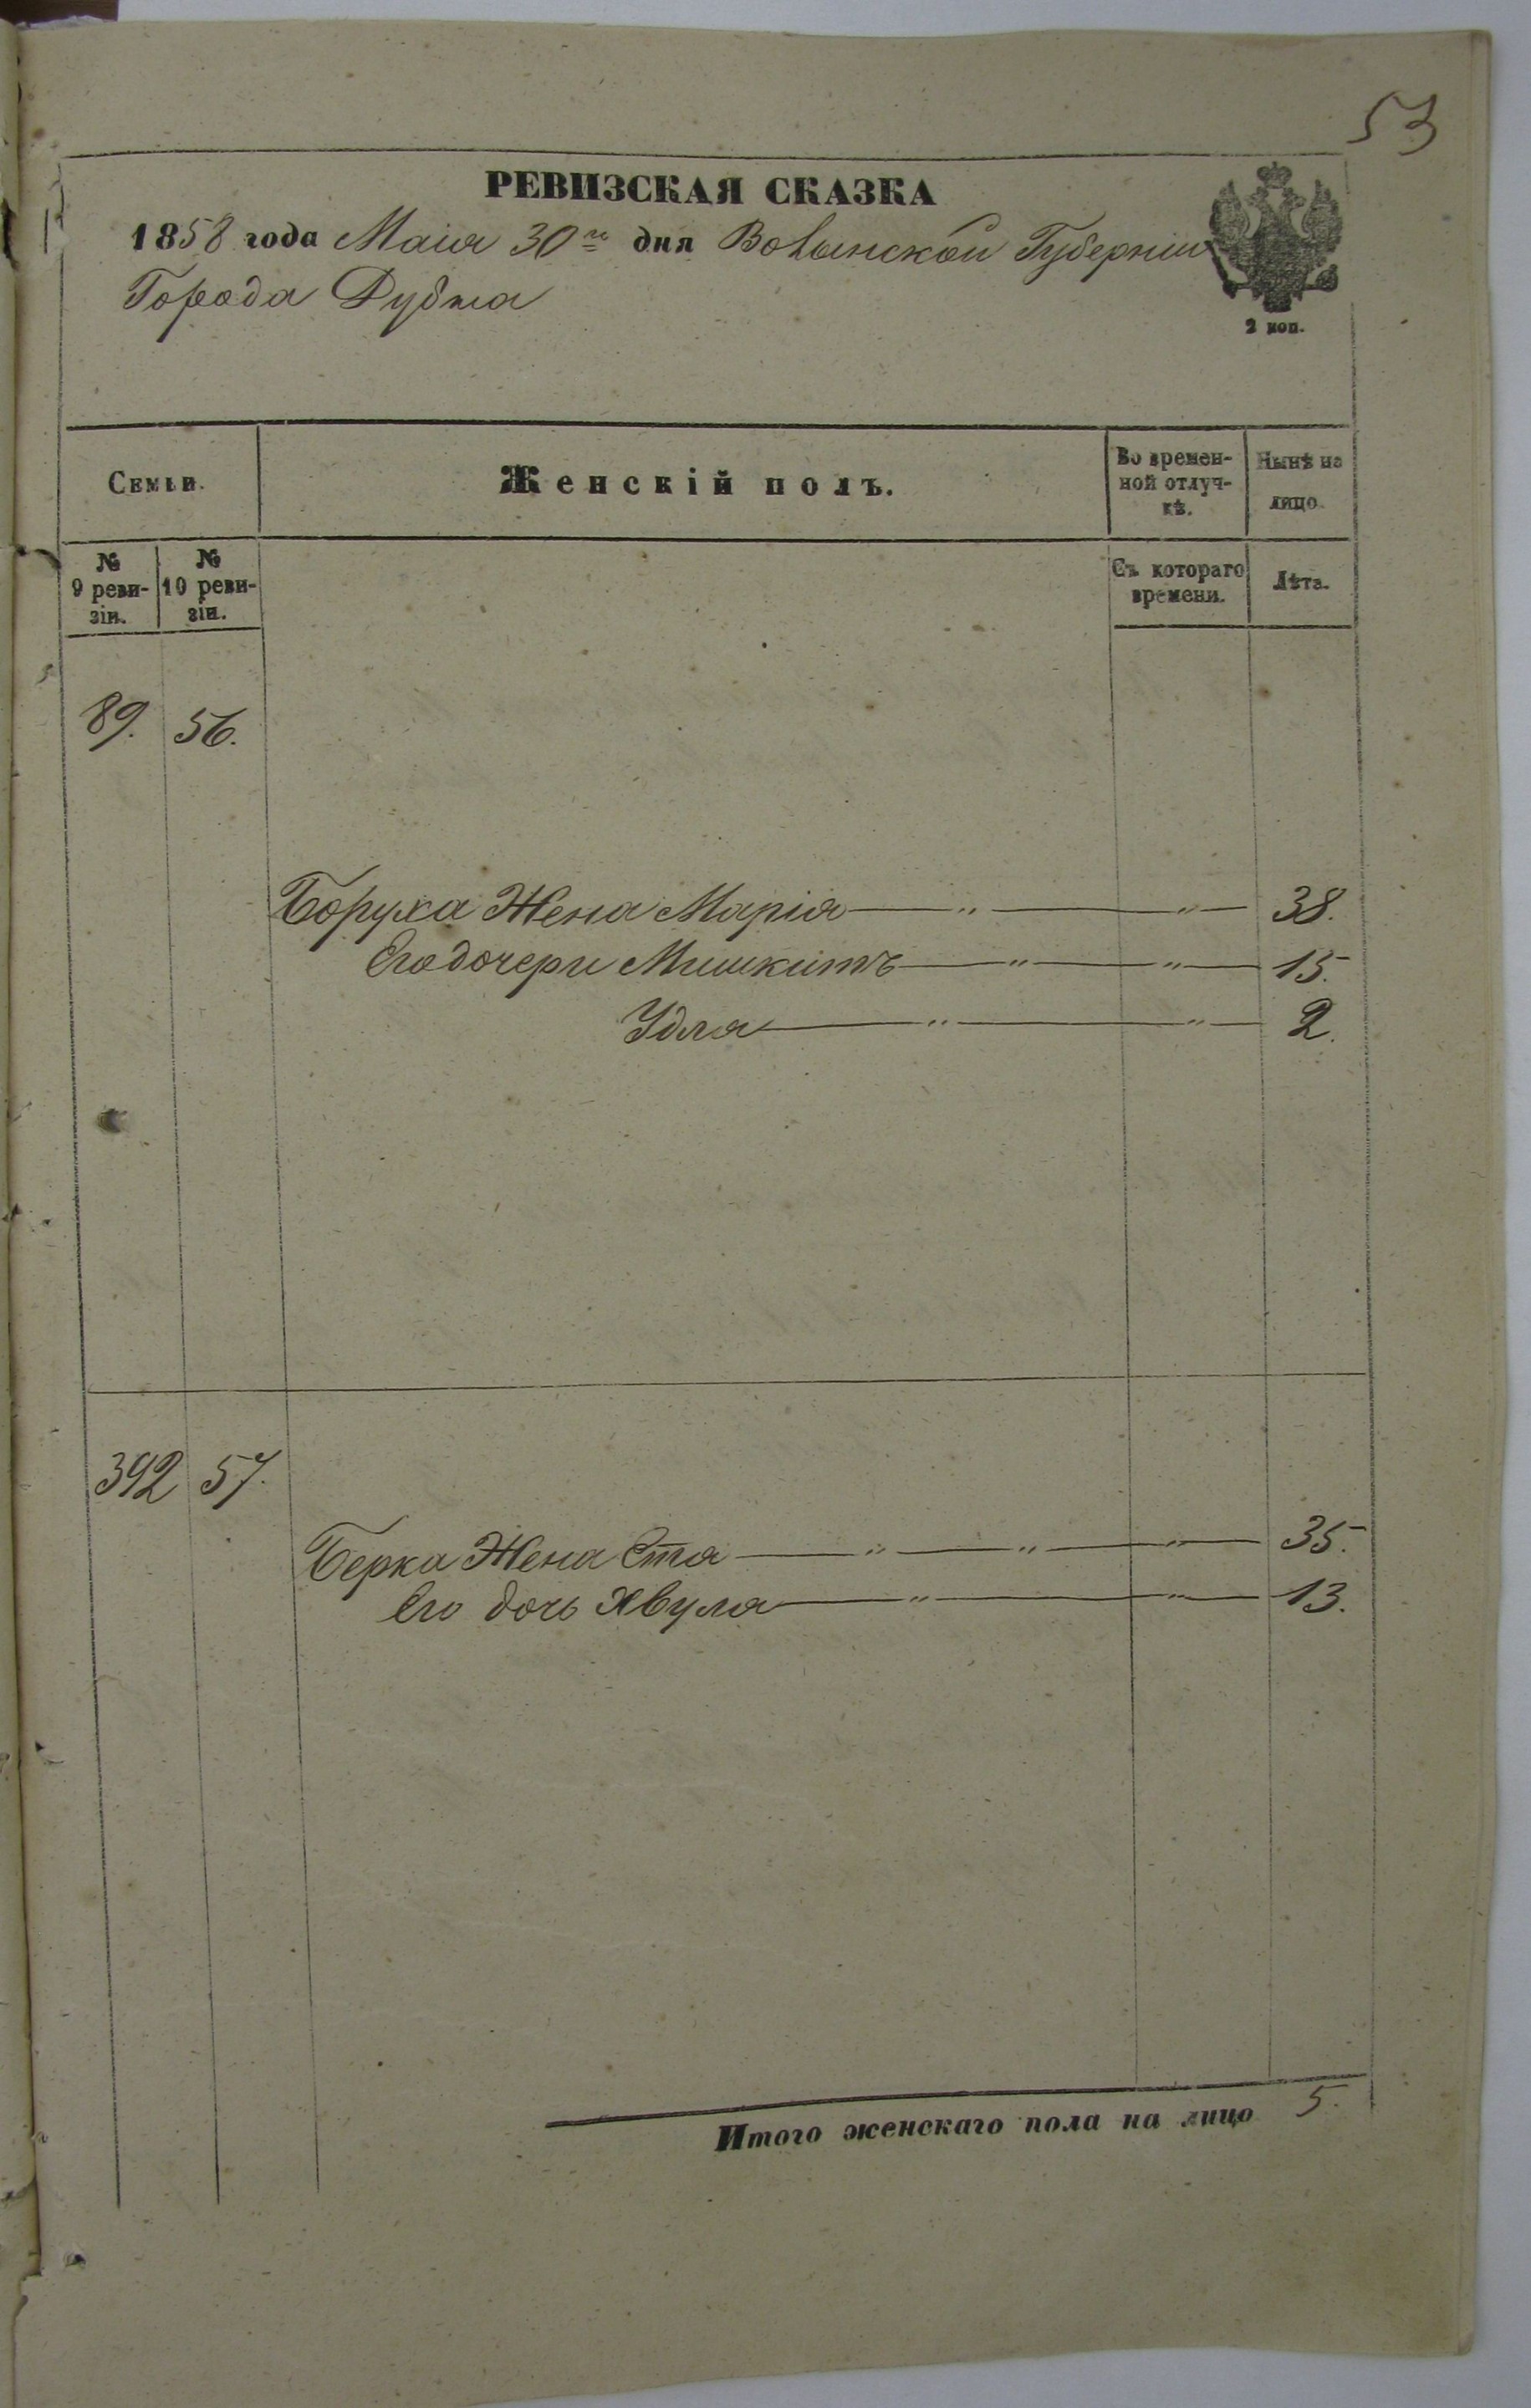 53
РЕВИЗСКАЯ СКАЗКА
1858 года Маія 30го дня Волынской Губерніи
Города Дубна
2 коп.
Семьи.
Женскій полъ.
Во времен-
ной отлуч-
кѣ.
Нынѣ на
лицо.
№
9 реви-
зіи.
№
10 реви-
зіи.
Съ котораго
времени.
Лѣта.
89. 56.
Боруха Жена Марія — " — " — 38.
Его дочери Мишкитъ — " — " — 15.
Удля — " — " — 2.
392 57.
Берка Жена Ета — " — " — " — 35.
Его дочь Хвуля — " — " — 13.
Итого женскаго пола на лицо 5.